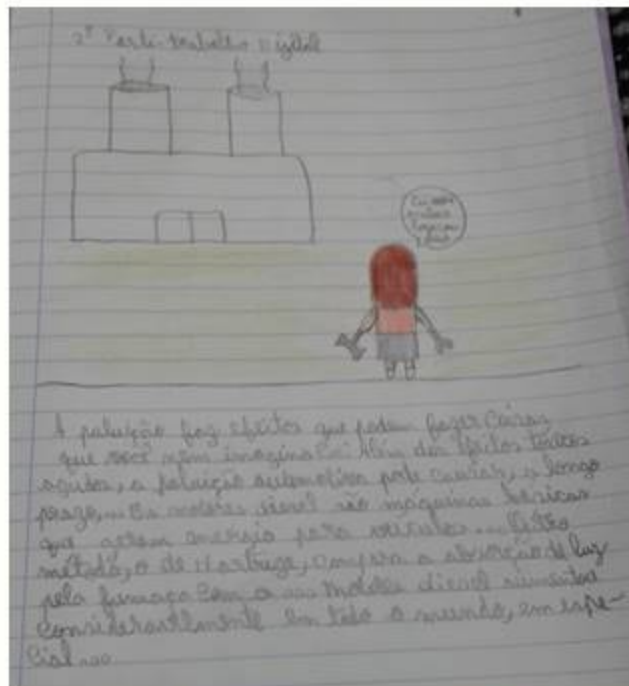 2ª Parte trabalho Digital
A poluição faz efeitos que podem fazer Coisas
que você nem imagina Além dos efeitos tóxicos
agudos, a poluição automotiva pode causar, a longo
prazo,... Os motores diesel são máquinas térmicas
que geram energia para veículos... Outro
método, o de Hartridge, compara a absorção de luz
pela fumaça Com a ... Motores diesel aumentou
Consideravelmente em todo o mundo, em espe-
cial...